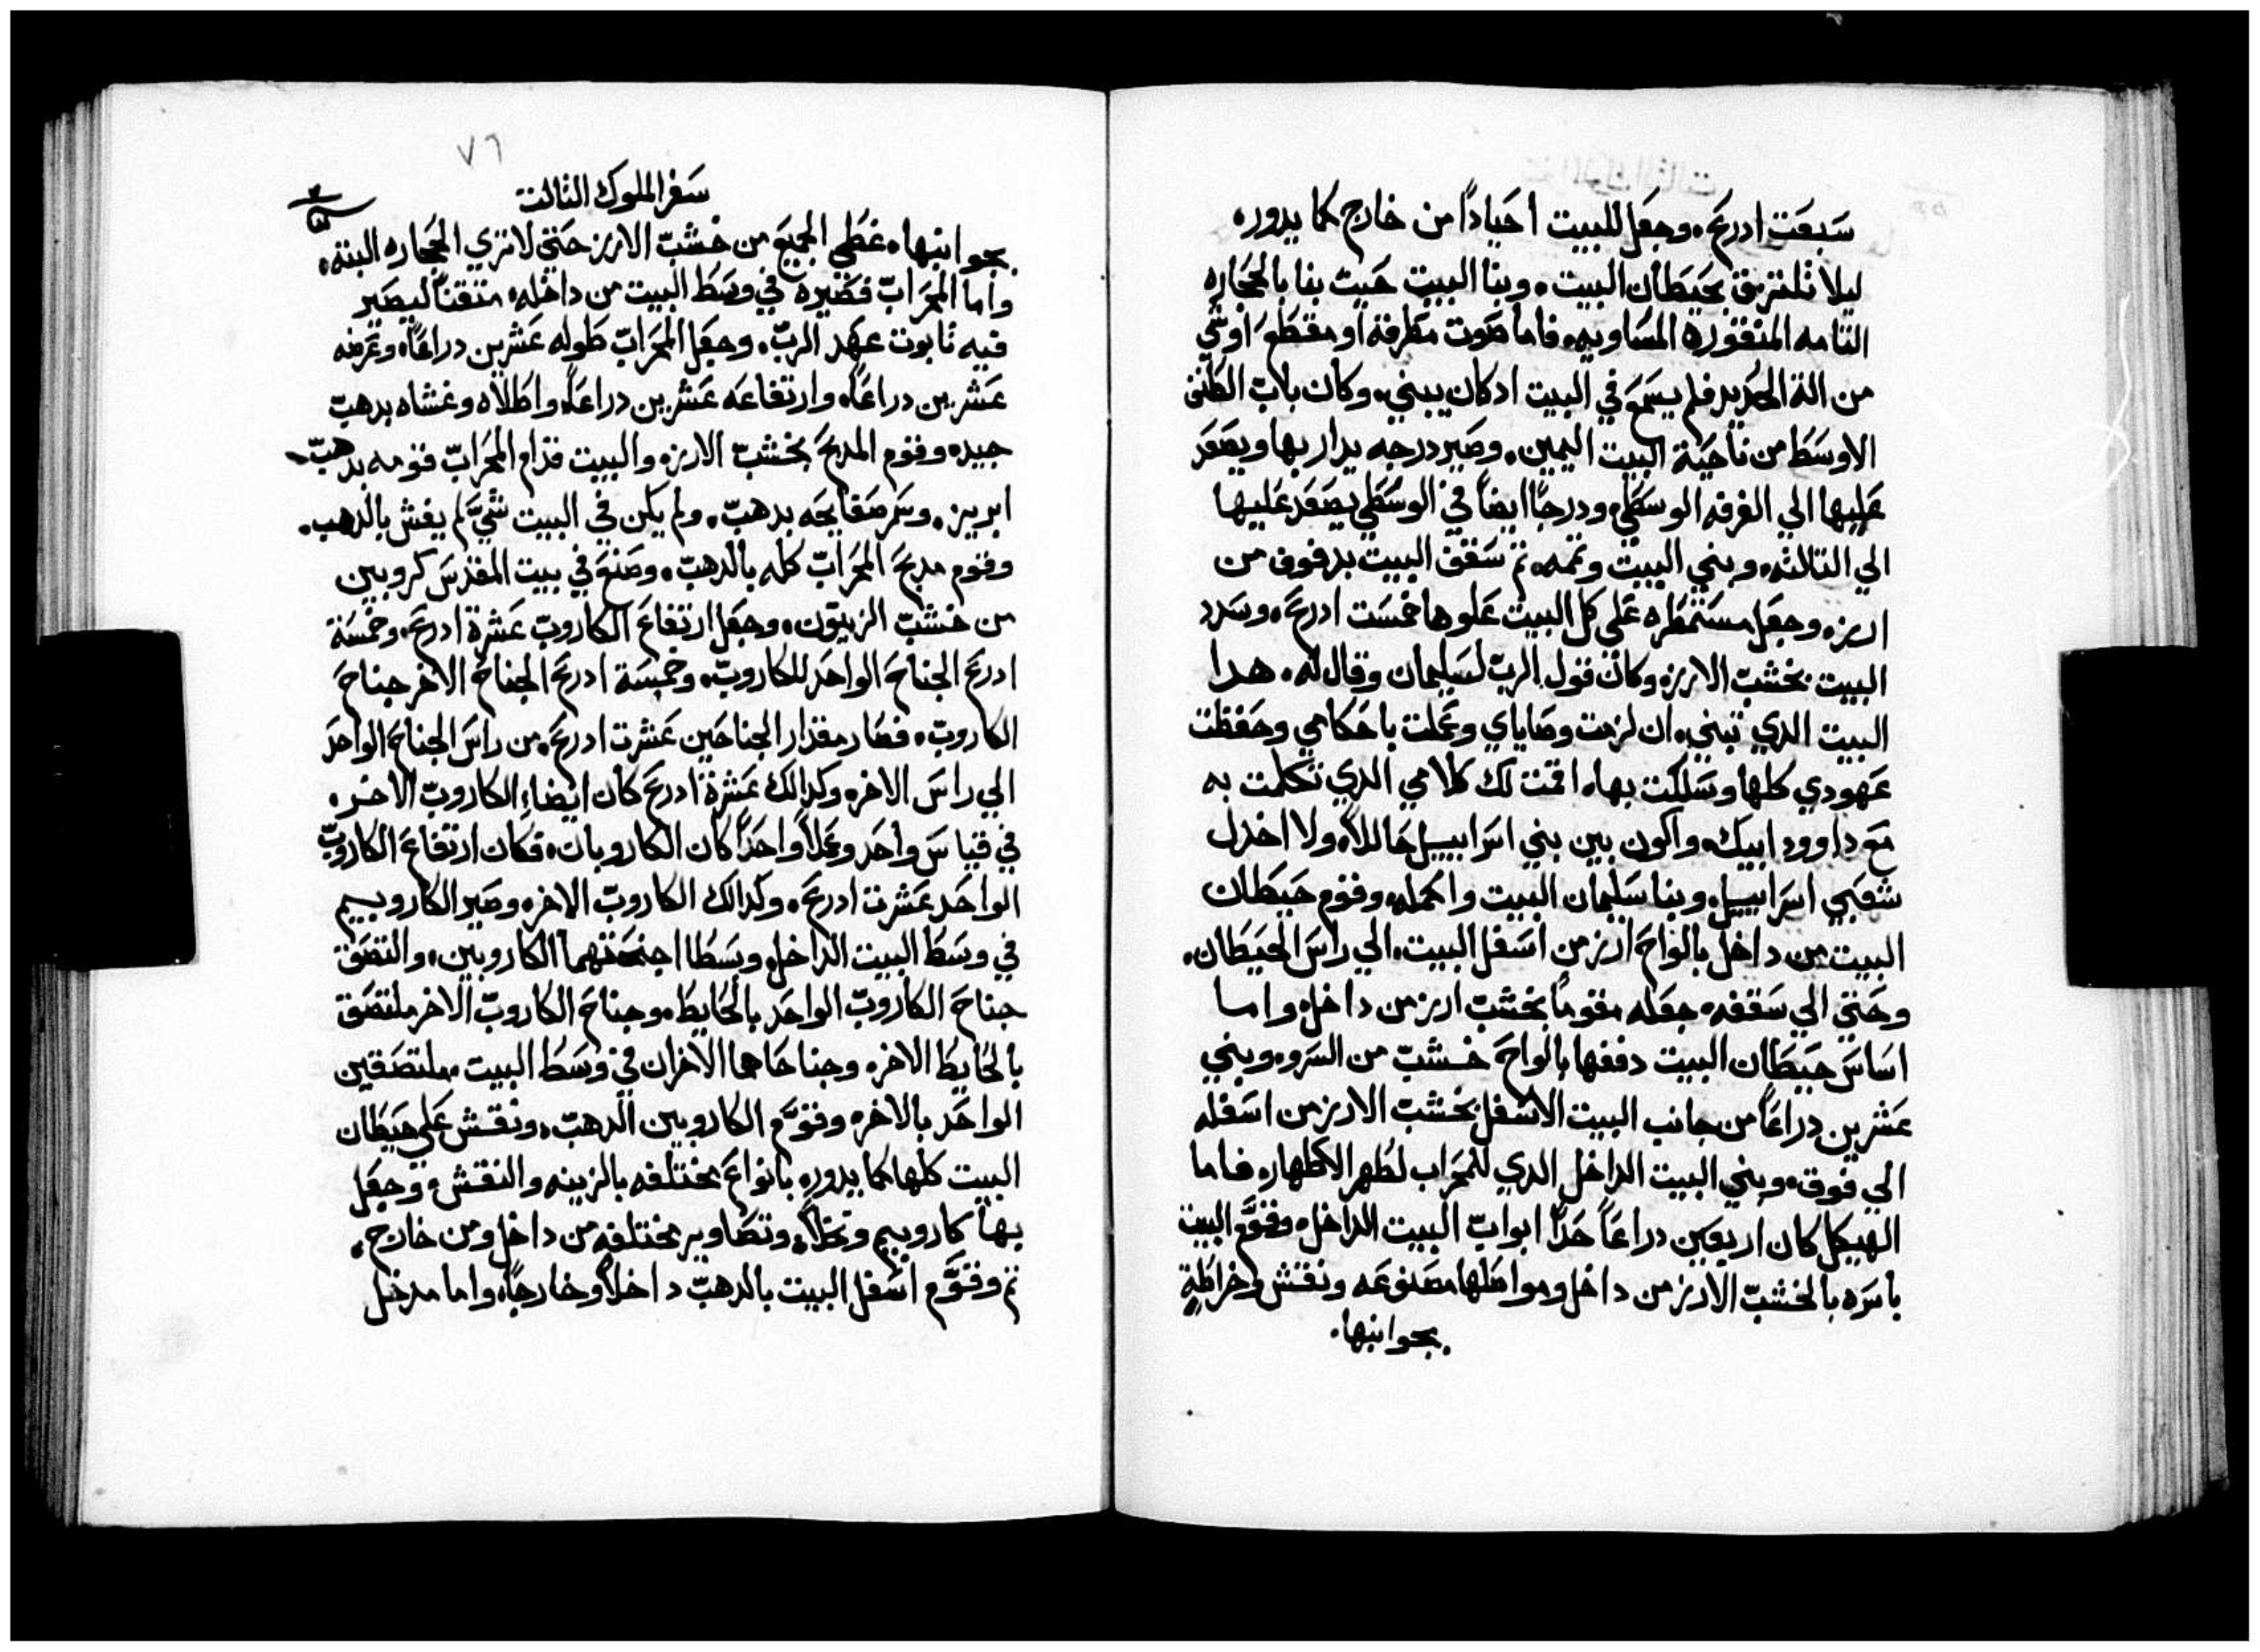 سَبعَت ادرعَ. وجعَل للبيت احَياداً من خارج كما يدوره
ليلا تلتزق بحَيطَان البيت. وبنا البيت حَيث بنا بالحجَاره
التامه المنقوره المسَاويه. فاما صَوت مطَرقة او مقطَعَ او شي
من الة الحَديد فلم يسَمعَ في البيت ادكان يبني. وكان بابّ الطَنف
الاوسَط من ناحَية البيت اليمين. وصَير درجه يدار بها ويصَعَد
عَليها الي الغرفه الوسَطَي. ودرجاً ايضاً في الوسَطَي يصَعَد عَليها
الي التالته. وبني البيت وتممه. تم سَقف البيت بدفوف من
ارز. وجعَل مسَتمطَره عَلي كل البيت عَلوها خمسَت ادرعَ. وسَدد
البيت بخشبّ الارز. وكان قول الربّ لسَليمان وقال له. هدا
البيت الدي تبني. ان لزمت وصَاياي وعَملت باحَكامي وحَفظت
عَهودي كلها وسَلكت بها. اقمت لك كلامي الدي تكلمت به
معَ داوود ابيك. واكون بين بني اسَراييل حَاللاً. ولا اخدل
شعَبي اسَراييل. وبنا سَليمان البيت واكمله. وقوم حَيطَان
البيت من داخل بالواحَ ارز من اسَفل البيت. الي راسَ الحَيطَان.
وحَتي الي سَقفه. جعَله مقوماً بخشبّ ارز من داخل. واما
اسَاسَ حَيطَان البيت دففها بالواحَ خشبّ من السَرو. وبني
عَشرين دراعَاً من جانب البيت الاسَفل بخشبّ الارز من اسَفله
الي فوق. وبني البيت الداخل الدي للمحَراب لطُهر الاطهار. فاما
الهيكل كان اربعَين دراعَاً حَداً ابوابّ البيت الداخل. وقوَّم البيت
باسَره بالخشبّ الارز من داخل ومواصَلها مصَنوعَه ونقش وخراطَةٍ
بجوانبها.
٧٦
سَفر الملوك التالت
٣
٥
بجوانبها. غطَي الجميعَ من خشبّ الارز حَتي لا تري الحجَاره البته.
واما المحَرابّ فصَيره في وسَطَ البيت من داخله. متقناً ليصَير
فيه تابوت عهَد الربّ. وجعَل المحَرابّ طَوله عَشرين دراعَاً. وعَرضه
عَشرين دراعَاً. وارتفاعَه عَشرين دراعَاً. واطَلاه وغشاه بدهبّ
جيد. وقوم المدبحَ بخشبّ الارز. والبيت قدام المحَرابّ قومه بدهبّ
ابريز. وسَمر صَفايحَه بدهبّ. ولم يكن في البيت شيّ لم يغش بالدهب.
وقوم مدبحَ المحَرابّ كله بالدهبّ. وصَنعَ في بيت المقدسَ كروبين
من خشبّ الزيتون. وجعَل ارتفاعَ الكاروبّ عَشرة ادرعَ. وخمسَة
ادرعَ الجناحَ الواحَد للكاروبّ. وخمسَة ادرعَ الجناحَ الاخر جناحَ
الكاروبّ. فصَار مقدار الجناحَين عَشرت ادرعَ. من راسَ الجناحَ الواحَد
الي راسَ الاخر. وكدالك عَشرة ادرعَ كان ايضاً الكاروبّ الاخر.
في قياسَ واحَد وعَملاً واحَداً كان الكاروبان. فكان ارتفاعَ الكاروبّ
الواحَد عَشرت ادرعَ. وكدالك الكاروبّ الاخر. وصَير الكاروبيم
في وسَطَ البيت الداخل. وبسَطَا اجنحَتهما الكاروبين. والتصَق
جناحَ الكاروبّ الواحَد بالحَايطَ. وجناحَ الكاروبّ الاخر ملتصَق
بالحَايطَ الاخر. وجناحَاهما الاخران في وسَطَ البيت. ملتصَقين
الواحَد بالاخر. وقوَّم الكاروبين الدهبّ. ونقش عَلي حَيطَان
البيت كلها كما يدور. بانواعَ مختلفه بالزينه والنقش. وجعَل
بها كاروبيم ونخلاً. وتصَاوير مختلفه من داخل ومن خارج.
تم وقوَّم اسَفل البيت بالدهبّ داخلاً وخارجاً. واما مدخل